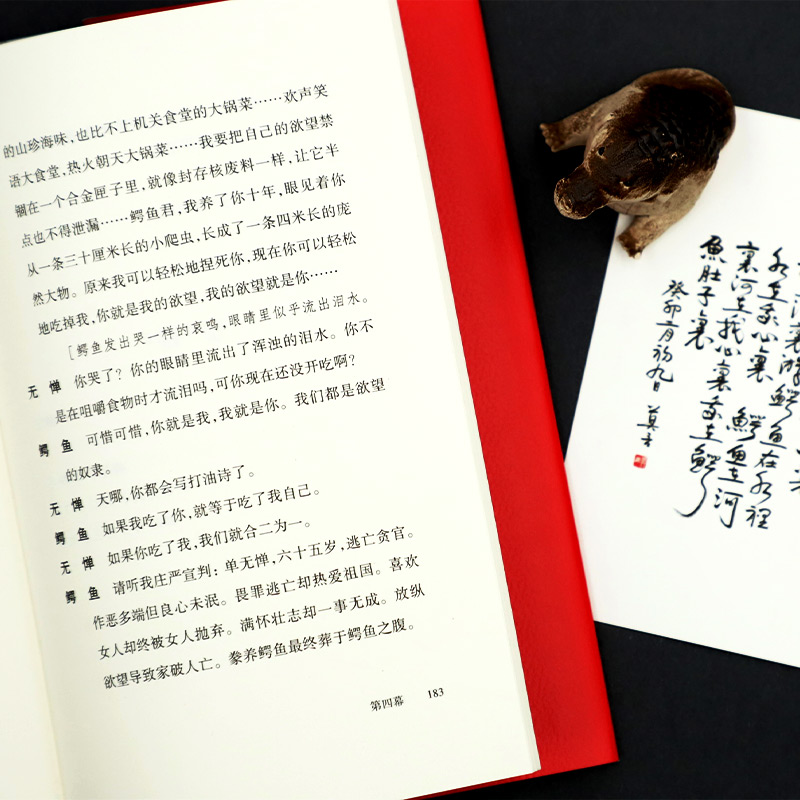 的山珍海味，也比不上机关食堂的大锅菜……欢声笑
语大食堂，热火朝天大锅菜……我要把自己的欲望禁
锢在一个合金匣子里，就像封存核废料一样，让它半
点也不得泄漏……鳄鱼君，我养了你十年，眼见着你
从一条三十厘米长的小爬虫，长成了一条四米长的庞
然大物。原来我可以轻松地捏死你，现在你可以轻松
地吃掉我，你就是我的欲望，我的欲望就是你……
［鳄鱼发出哭一样的哀鸣，眼睛里似乎流出泪水。
无惮 你哭了？你的眼睛里流出了浑浊的泪水。你不
是在咀嚼食物时才流泪吗，可你现在还没开吃啊？
鳄鱼 可惜可惜，你就是我，我就是你。我们都是欲望
的奴隶。
无惮 天哪，你都会写打油诗了。
鳄鱼 如果我吃了你，就等于吃了我自己。
无惮 如果你吃了我，我们就合二为一。
鳄鱼 请听我庄严宣判：单无惮，六十五岁，逃亡贪官。
作恶多端但良心未泯。畏罪逃亡却热爱祖国。喜欢
女人却终被女人抛弃。满怀壮志却一事无成。放纵
欲望导致家破人亡。豢养鳄鱼最终葬于鳄鱼之腹。
第四幕 183
鳄鱼在水裡
水在我心裏 鳄鱼在河
裏河在我心裏 我在鳄
魚肚子裏
癸卯二月初九日 莫言